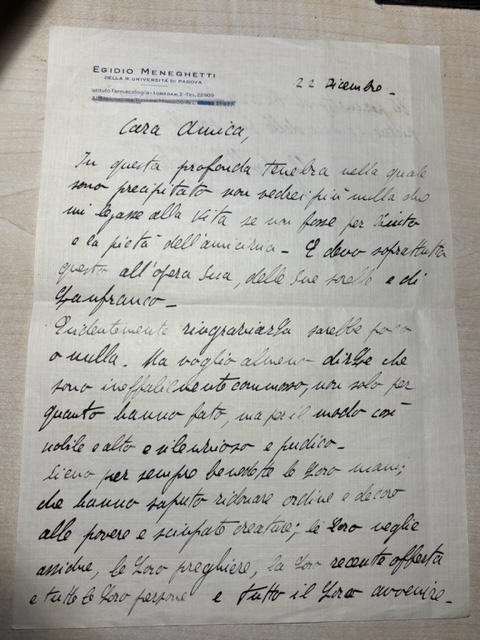 EGIDIO MENEGHETTI
DELLA R. UNIVERSITÀ DI PADOVA
Istituto Farmacologia - Loredan, 2 - Tel. 22909
22 Dicembre -
Cara Amica,
In questa profonda tenebra nella quale
sono precipitato non vedrei più nulla che
mi legasse alla vita se non fosse per l'aiuto
e la pietà dell'amicizia - E devo soprattutto
questo all'opera Sua, delle Sue sorelle e di
Lanfranco -
Evidentemente ringraziarLa sarebbe poco
o nulla. Ma voglio almeno dirLe che
sono ineffabilmente commosso, non solo per
quanto hanno fatto, ma per il modo così
nobile e alto e silenzioso e pudico -
Sieno per sempre benedette le Loro mani,
che hanno saputo ridonare ordine e decoro
alle povere e sciupate creature; le Loro veglie
assidue, le Loro preghiere, la Loro recente offerta
e tutte le Loro persone e tutto il Loro avvenire -